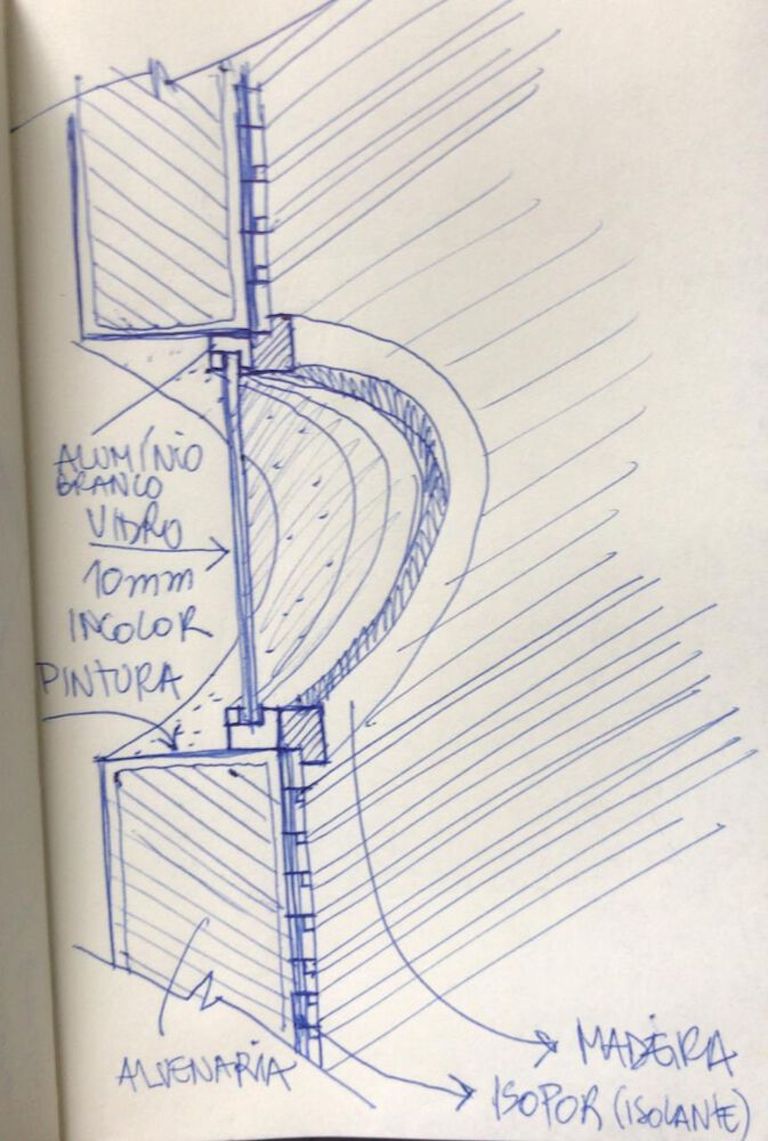 ALUMÍNIO
BRANCO
VIDRO
10mm
INCOLOR
PINTURA
ALVENARIA
MADEIRA
ISOPOR (ISOLANTE)